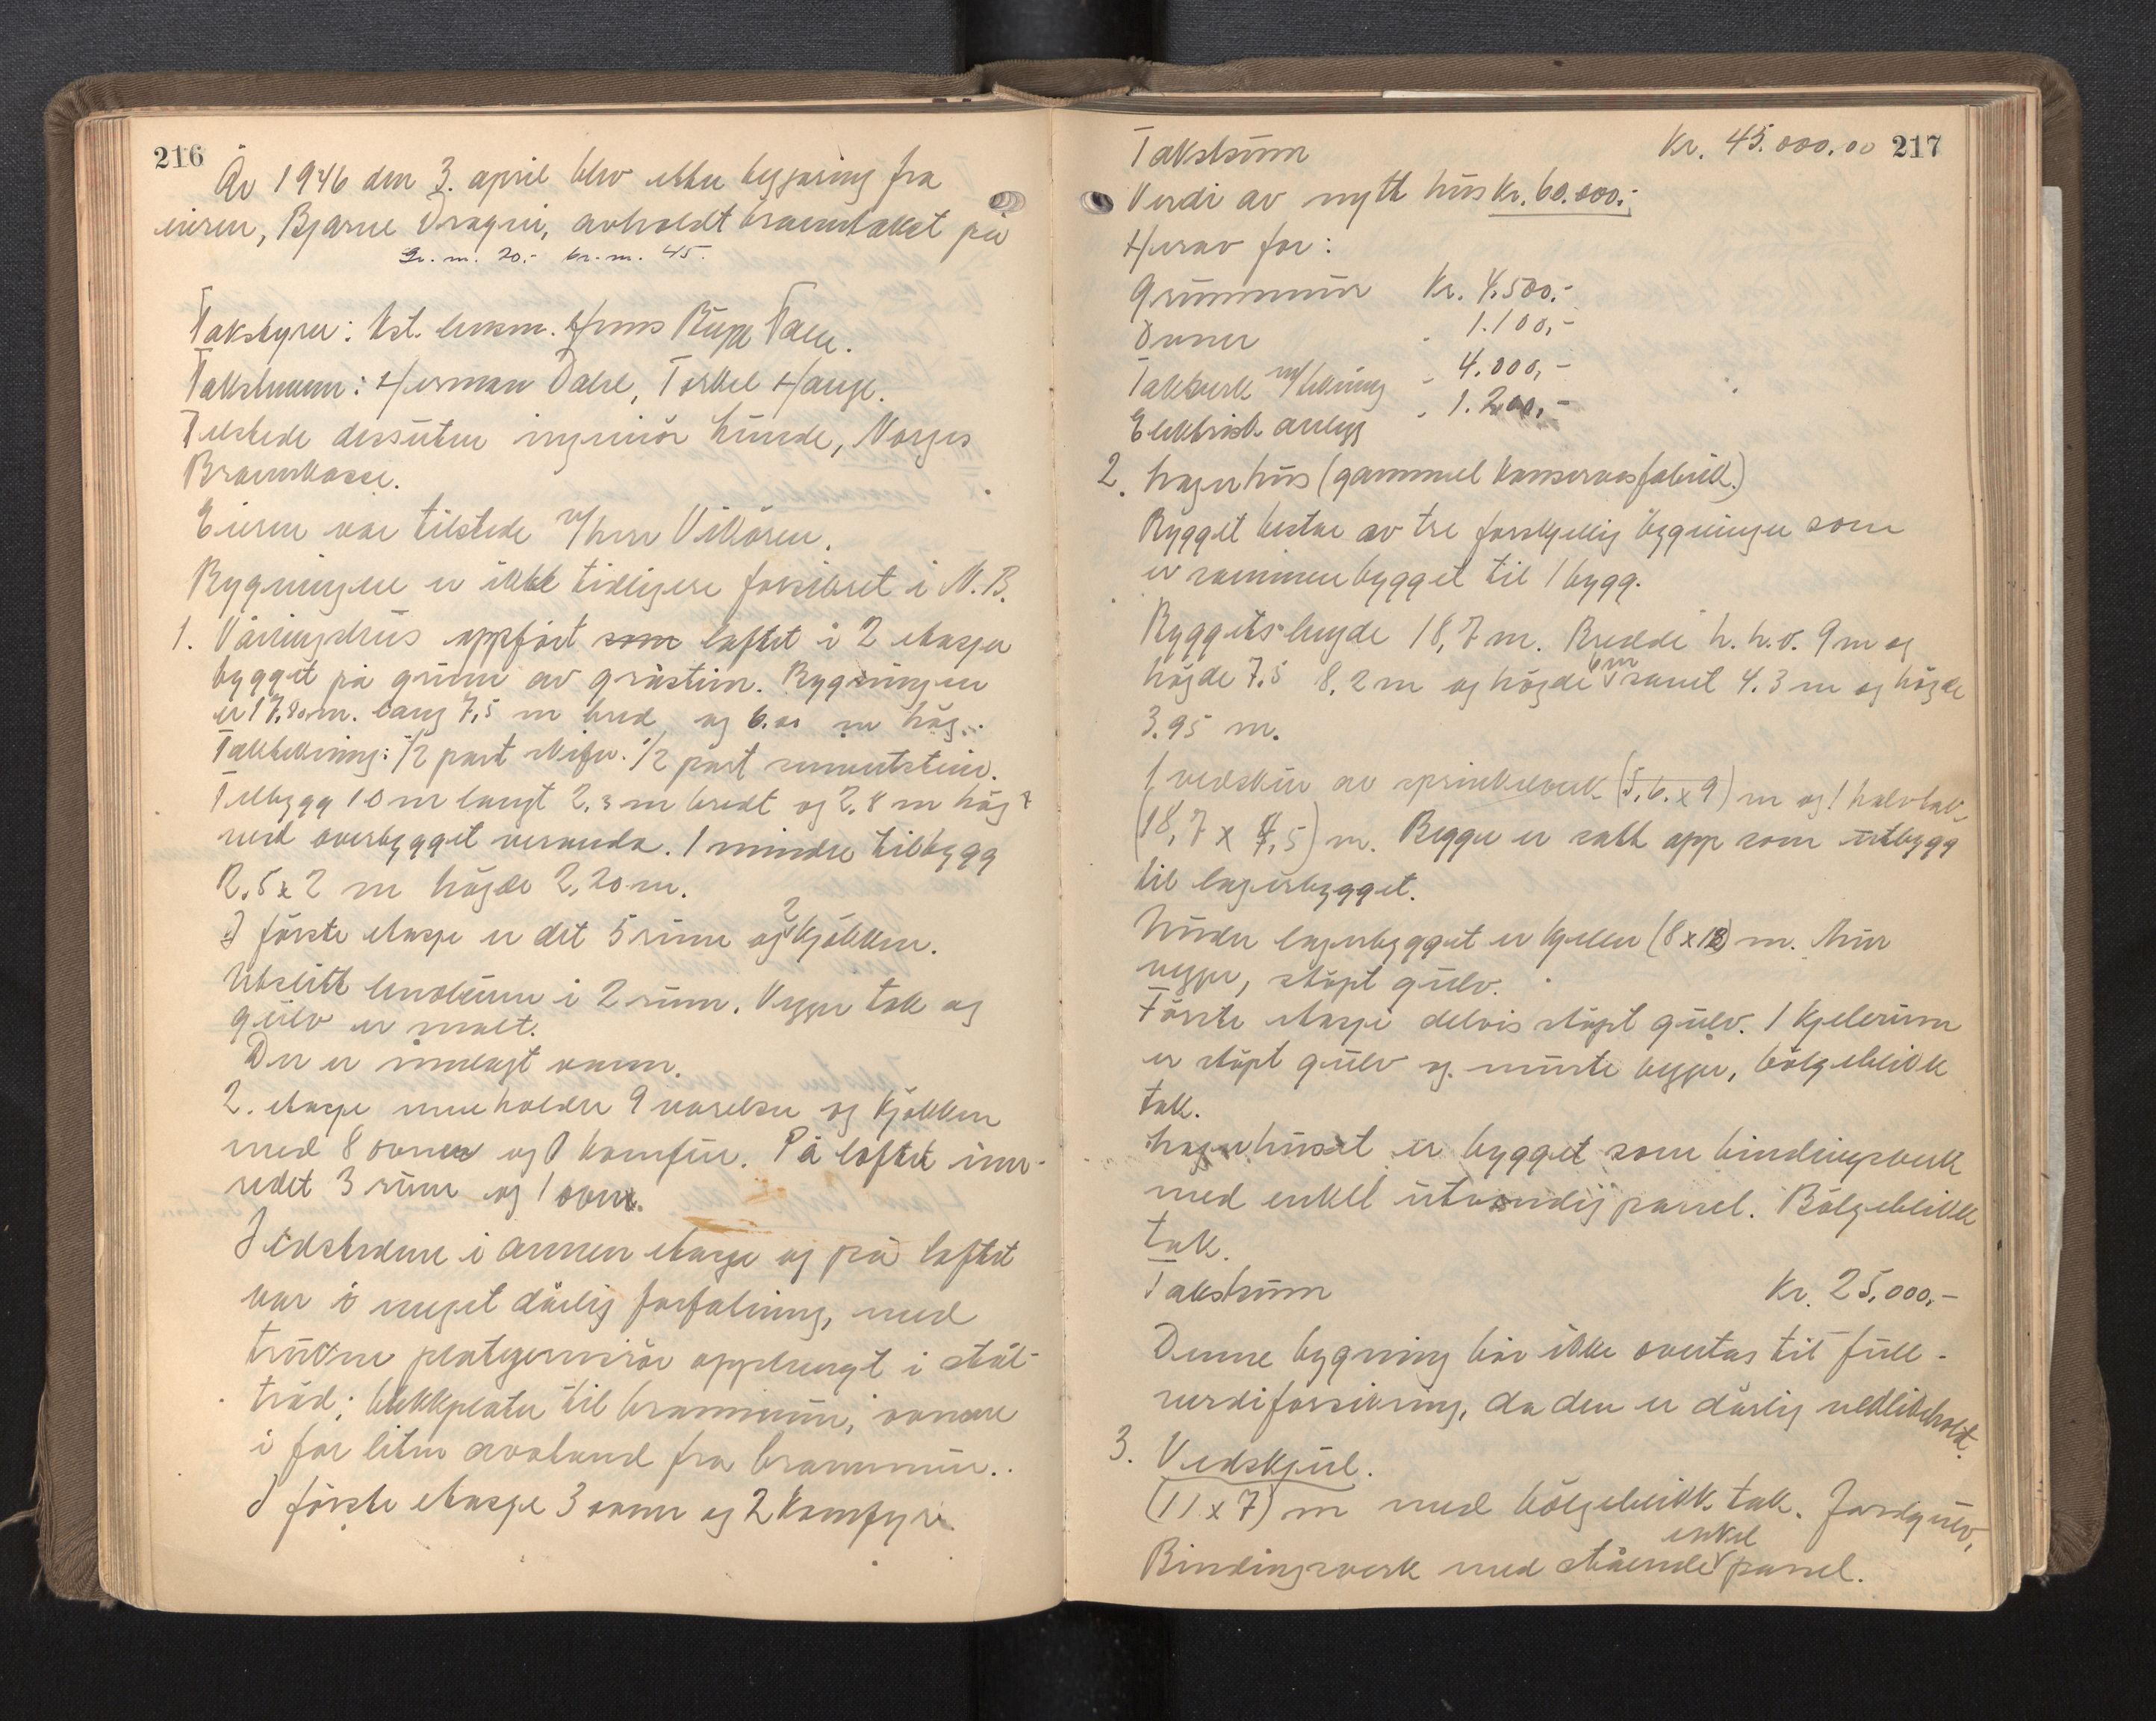 216
År 1946 den 3. april blev etter begjæring fra
eieren, Bjarne Dragøi, avholdt branntakst på
Gr. nr. 20.- br. nr. 45.
Takstyrer: Kst. lensm. Hans Tale.
Takstmenn: Herman Dale, Torkel Hauge.
Tilstede dessuten ingeniör Lunde, Norges
Brannkasse.
Eieren var tilstede v/herr Vikören.
Bygningene er ikke tidligere forsikret i N. B.
1. Våningshus oppfört som laftet i 2 etasjer
bygget på grunn av gråstein. Bygningen
er 17,80 m. lang 7,5 m bred og 6.00 m høg.
Taktekning: 1/2 part skifer. 1/2 part sementstein.
Tilbygg 10 m langt 2,3 m bredt og 2,8 m høgt
med overbygget veranda. 1 mindre tilbygg
2,5 x 2 m høgde 2,20 m.
I förste etasje er det 5 rum og 2 kjökken.
Utslitt linoleum i 2 rum. Vegger tak og
gulv er malt.
Der er innlagt vann.
2. etasje inneholder 9 værelser og kjökken
med 8 ovner og 1 komfur. På loftet inn-
redet 3 rum og 1 ovn.
Ildstedene i annen etasje og på loftet
var i meget dårlig forfatning, med
trukne plategerör opphengt i stål-
tråd; blikkplater til brannmur, ovnene
i for liten avstand fra brannmur.
I förste etasje 3 ovner og 2 komfyrer.
217
Takstsum Kr. 45.000.00
Verdi av nytt hus kr. 60.000.-
Herav for:
Grunnmur Kr. 4.500.-
Ovner " 1.100,-
Takverk m/tekning - 4.000,-
Elektrisk anlegg " 1.200,-
2. Lagerhus (gammel konservesfabrikk.)
Bygget består av tre forskjellig bygninger som
er sammenbygget til 1 bygg.
Byggets lengde 18,7 m. Bredde h. h. v. 9 m og
högde 7,5 8,2 m og högde 6 m samt 4.3 m og högde
3.95 m.
1 vedskur av sprinkelverk (5,6 x 9) m og 1 halvtak
(18,7 x 4,5) m. Begge er satt opp som utbygg
til lagerbygget.
Under lagerbygget er kjeller (8 x 18) m. Mur
vegger, stöpt gulv.
Förste etasje delvis stöpt gulv. 1 kjelerum
er stöpt gulv og murte vegger, bölgeblikk
tak.
Lagerhuset er bygget som bindingsverk
med enkel utvendig panel. Bölgeblikk
tak.
Takstsum Kr. 25.000.-
Denne bygning bör ikke overtas til full-
verdiforsikring, da den er dårlig vedlikeholdt.
3. Vedskjul.
(11 x 7) m med bölgeblikk tak. Jordgulv,
Bindingsverk med stående enkel panel.